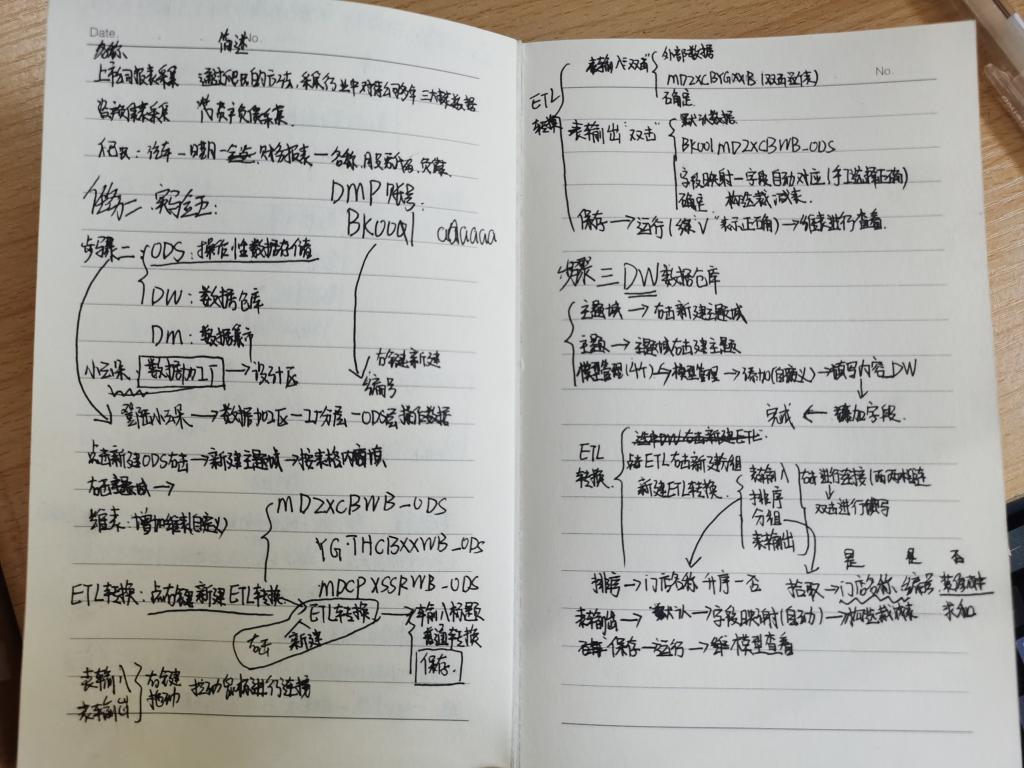 Date. No.
名称 简述
上市公司报表采集 通过爬取的方法,采集行业中对标公司多年三大报表数据
任务二 实验五: DMP账号:
BK0091 aaaaaa
步骤二 ODS:操作性数据存储
DW:数据仓库
Dm:数据集市
小云朵 数据加工厂→设计区
右键新建
编号
登陆小云朵→数据加工区—工厂分层—ODS层操作数据
点击新建ODS右击→新建主题域→按表格内容填
右击主题域→
维表:增加维表(自定义)
MDZXCBWB_ODS
YGTHCBXXWB_ODS
MDCPXSSRWB_ODS
ETL转换:点右键新建ETL转换
ETL转换
右击 新建
输入标题
普通转换
保存.
表输入
表输出
右键
拖动
拉动鼠标进行连接
No.
ETL
转换
表输入"双击"
外部数据
MDZXCBYGXXB(双击函数)
确定
表输出"双击"
默认数据
BK001MDZXCBWB_ODS
字段映射—字段自动对应(手工选择正确)
确定
保存→运行(绿"√"表示正确)→维表进行查看.
步骤三 DW数据仓库
主题域→右击新建主题域
主题→主题域右击建主题
模型管理(4个)→模型管理→添加(自定义)→填写内容DW
完成 ← 添加字段.
ETL
转换
选中DW右击新建ETL.
点ETL右击新建分组
新建ETL转换.
表输入
排序
分组
表输出
右击进行连接(两两相连
双击进行填写
是 是 否
排序→门店名称 升序—否
拾取→门店名称、编号
求和
表输出→默认→字段映射(自动)→
保存—运行→维模型查看